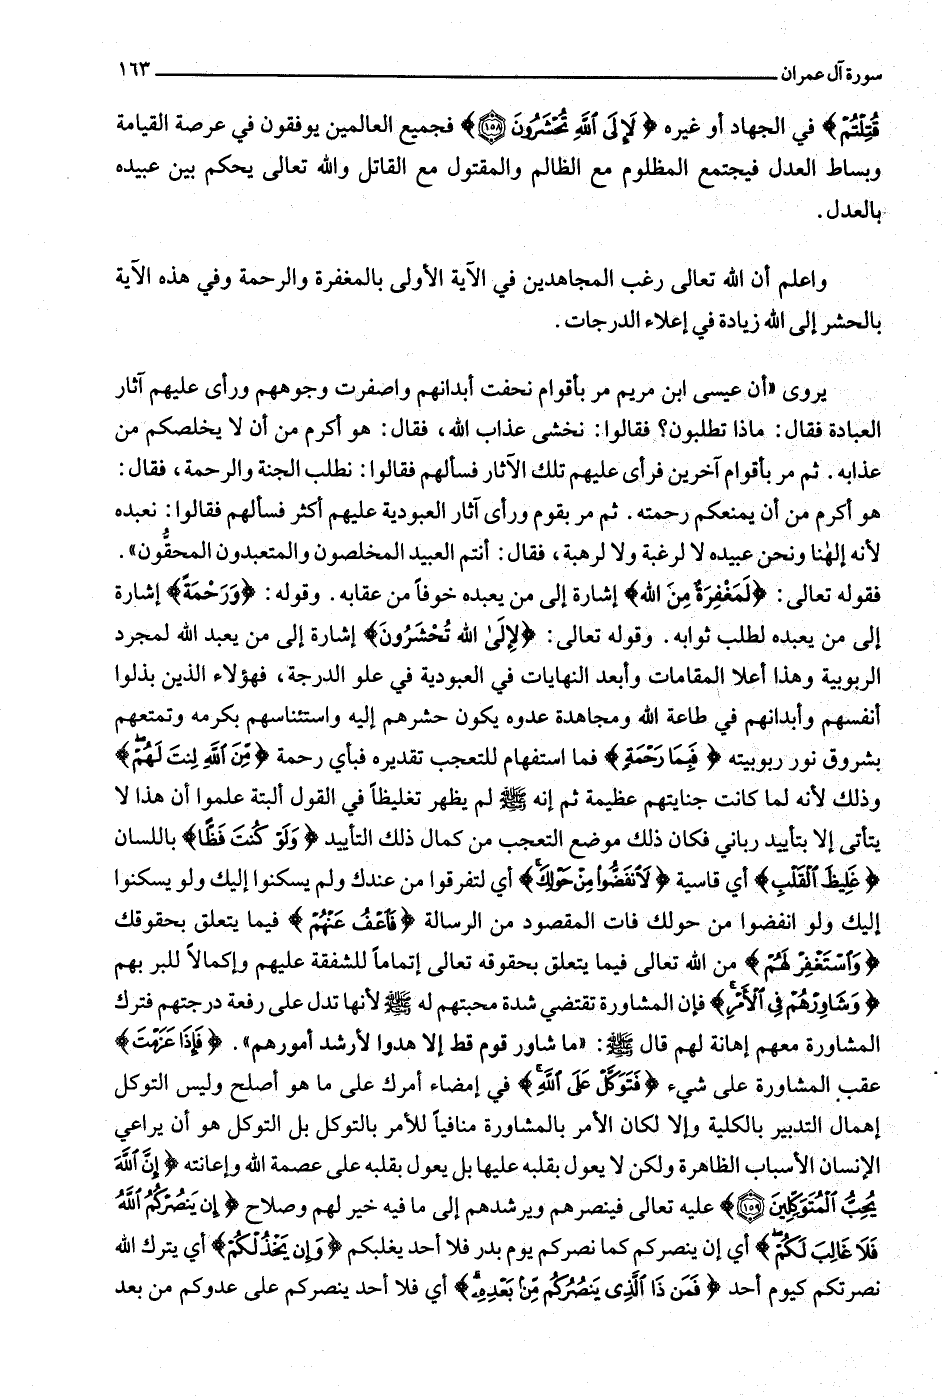 سورة آل عمران ١٦٣
قُتِلْتُمْ﴾ في الجهاد أو غيره ﴿لَإِلَى ٱللَّهِ تُحْشَرُونَ ١٥٨﴾ فجميع العالمين يوفقون في عرصة القيامة
وبساط العدل فيجتمع المظلوم مع الظالم والمقتول مع القاتل والله تعالى يحكم بين عبيده
بالعدل.
واعلم أن الله تعالى رغب المجاهدين في الآية الأولى بالمغفرة والرحمة وفي هذه الآية
بالحشر إلى الله زيادة في إعلاء الدرجات.
يروى «أن عيسى ابن مريم مر بأقوام نحفت أبدانهم واصفرت وجوههم ورأى عليهم آثار
العبادة فقال: ماذا تطلبون؟ فقالوا: نخشى عذاب الله، فقال: هو أكرم من أن لا يخلصكم من
عذابه. ثم مر بأقوام آخرين فرأى عليهم تلك الآثار فسألهم فقالوا: نطلب الجنة والرحمة، فقال:
هو أكرم من أن يمنعكم رحمته. ثم مر بقوم ورأى آثار العبودية عليهم أكثر فسألهم فقالوا: نعبده
لأنه إلهٰنا ونحن عبيده لا لرغبة ولا لرهبة، فقال: أنتم العبيد المخلصون والمتعبدون المحقُّون».
فقوله تعالى: ﴿لَمَغْفِرَةٌ مِنَ الله﴾ إشارة إلى من يعبده خوفاً من عقابه. وقوله: ﴿وَرَحْمَةً﴾ إشارة
إلى من يعبده لطلب ثوابه. وقوله تعالى: ﴿لإِلَىٰ الله تُحْشَرُونَ﴾ إشارة إلى من يعبد الله لمجرد
الربوبية وهذا أعلا المقامات وأبعد النهايات في العبودية في علو الدرجة، فهؤلاء الذين بذلوا
أنفسهم وأبدانهم في طاعة الله ومجاهدة عدوه يكون حشرهم إليه واستئناسهم بكرمه وتمتعهم
بشروق نور ربوبيته ﴿فَبِمَا رَحْمَةٍ﴾ فما استفهام للتعجب تقديره فبأي رحمة ﴿مِّنَ ٱللَّهِ لِنتَ لَهُمْ ۖ﴾
وذلك لأنه لما كانت جنايتهم عظيمة ثم إنه ﷺ لم يظهر تغليظاً في القول ألبتة علموا أن هذا لا
يتأتى إلا بتأييد رباني فكان ذلك موضع التعجب من كمال ذلك التأييد ﴿وَلَوْ كُنتَ فَظًّا﴾ باللسان
﴿غَلِيظَ ٱلْقَلْبِ﴾ أي قاسية ﴿لَٱنفَضُّوا۟ مِنْ حَوْلِكَ ۖ﴾ أي لتفرقوا من عندك ولم يسكنوا إليك ولو يسكنوا
إليك ولو انفضوا من حولك فات المقصود من الرسالة ﴿فَٱعْفُ عَنْهُمْ﴾ فيما يتعلق بحقوقك
﴿وَٱسْتَغْفِرْ لَهُمْ﴾ من الله تعالى فيما يتعلق بحقوقه تعالى إتماماً للشفقة عليهم وإكمالاً للبر بهم
﴿وَشَاوِرْهُمْ فِى ٱلْأَمْرِ ۖ﴾ فإن المشاورة تقتضي شدة محبتهم له ﷺ لأنها تدل على رفعة درجتهم فترك
المشاورة معهم إهانة لهم قال ﷺ: «ما شاور قوم قط إلا هدوا لأرشد أمورهم». ﴿فَإِذَا عَزَمْتَ﴾
عقب المشاورة على شيء ﴿فَتَوَكَّلْ عَلَى ٱللَّهِ ۚ﴾ في إمضاء أمرك على ما هو أصلح وليس التوكل
إهمال التدبير بالكلية وإلا لكان الأمر بالمشاورة منافياً للأمر بالتوكل بل التوكل هو أن يراعي
الإنسان الأسباب الظاهرة ولكن لا يعول بقلبه عليها بل يعول بقلبه على عصمة الله وإعانته ﴿إِنَّ ٱللَّهَ
يُحِبُّ ٱلْمُتَوَكِّلِينَ ١٥٩﴾ عليه تعالى فينصرهم ويرشدهم إلى ما فيه خير لهم وصلاح ﴿إِن يَنصُرْكُمُ ٱللَّهُ
فَلَا غَالِبَ لَكُمْ ۖ﴾ أي إن ينصركم كما نصركم يوم بدر فلا أحد يغلبكم ﴿وَإِن يَخْذُلْكُمْ﴾ أي يترك الله
نصرتكم كيوم أحد ﴿فَمَن ذَا ٱلَّذِى يَنصُرُكُم مِّنۢ بَعْدِهِۦ ۗ﴾ أي فلا أحد ينصركم على عدوكم من بعد